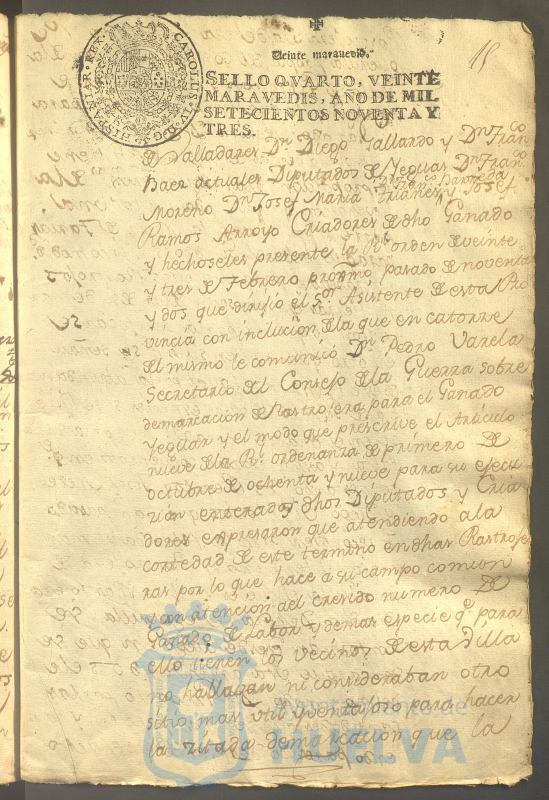 15
Veinte maravedis.
SELLO QVARTO, VEINTE
MARAVEDIS, AÑO DE MIL
SETECIENTOS NOVENTA Y
TRES.
CAROLUS IV D G HISPANIAR REX
Valladares Dn Diego Gallardo y Dn Franco
actuales Diputados de Yeguas Dn Fran
Moreno Dn Josef Maria Trianes y Josef
Ramos Arroyo Criadores de dho Ganado
y hechoseles presente la Rl orden de veinte
y tres de Febrero proximo pasado de noventa
y dos que dirijio el Sor Asistente de esta Pro
vincia con inclucion de la que en catorze
del mismo le comunicó Dn Pedro Varela
Secretario del Consejo de la Guerra sobre
demarcacion de Rastrojera para el Ganado
Yeguar y el modo que prescrive el Articulo
nueve de la Rl ordenanza de primero de
octubre de ochenta y nueve para su ejecu
zion enterados dhos Diputados y Cria
dores expresaron que atendiendo a la
cortedad de este termino en dhas Rastroje
ras por lo que hace a su campo comun
y con atencion del crecido numero de
Ganado de labor y demas especie qe para
ello tienen los vecinos de esta Villa
no hallagan ni consideraban otro
sitio mas util y ventajoso para hacer
la zitada demarcacion que la
Ayuntamiento de
HUELVA